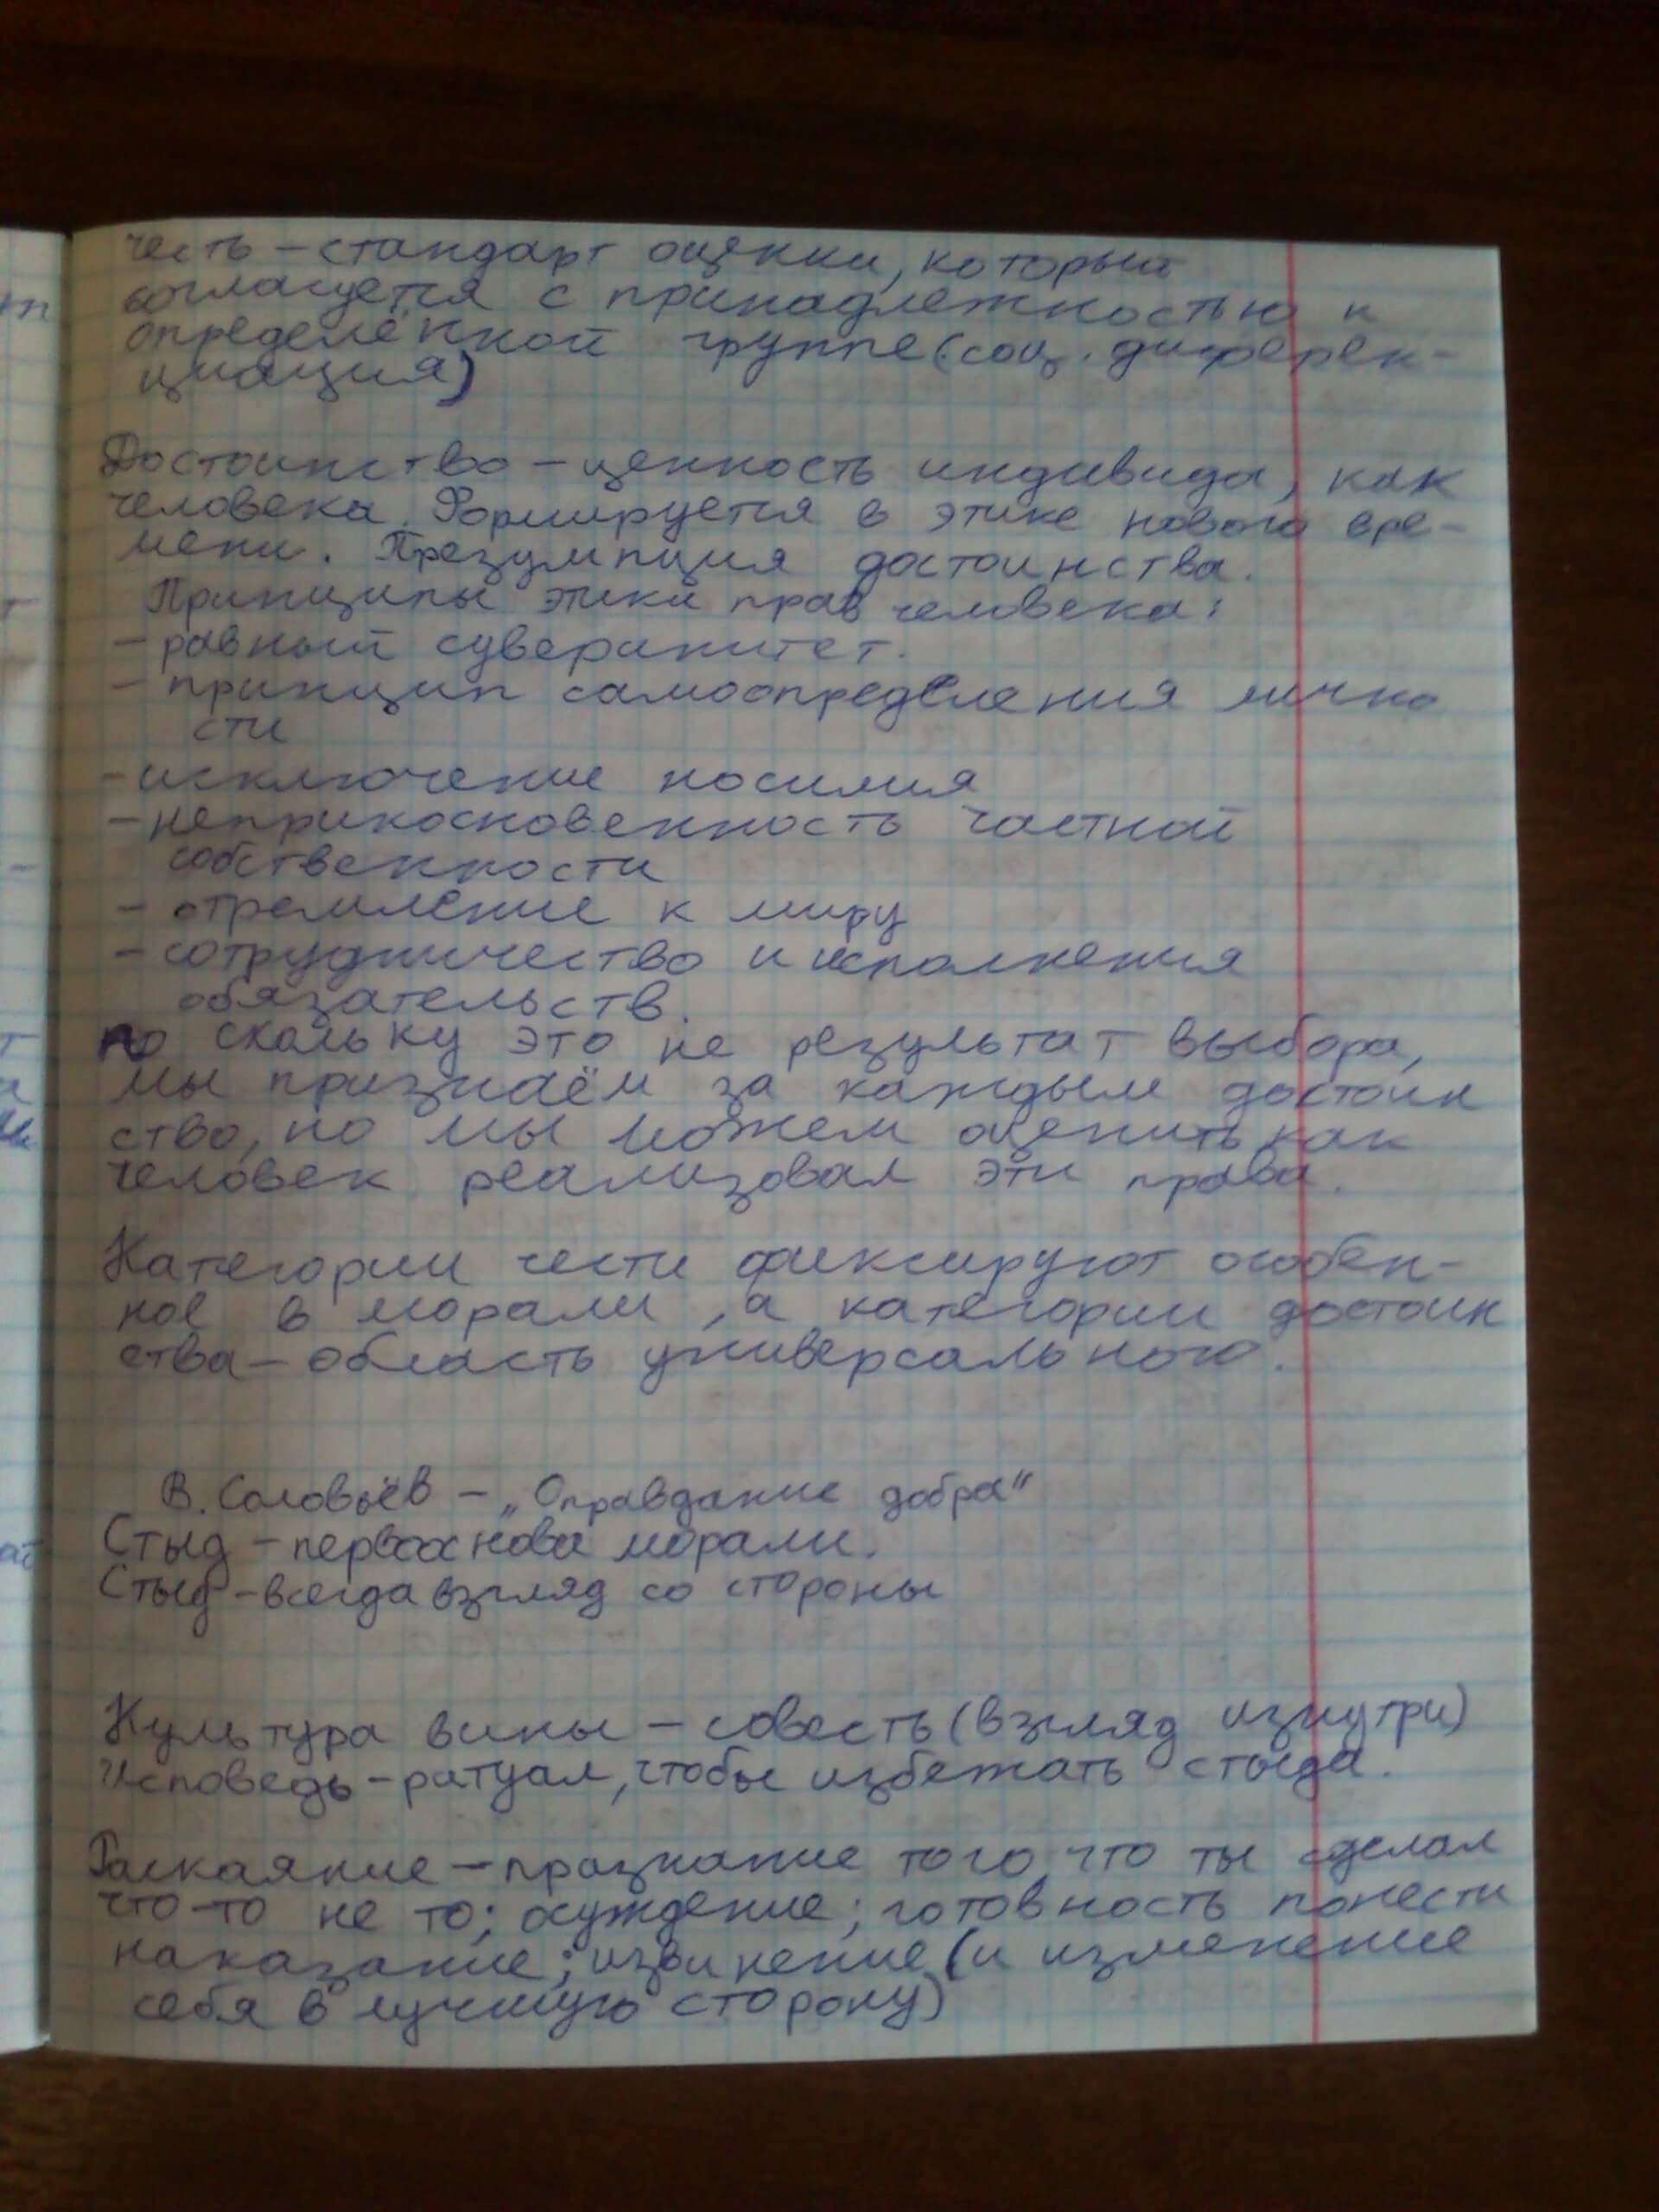 честь – стандарт оценки, который
согласуется с принадлежностью к
определённой группе (соц. диферен-
циация)
Достоинство – ценность индивида, как
человека. Формируется в этике нового вре-
мени. Презумпция достоинства.
Принципы этики прав человека:
– равный суверанитет.
– принцип самоопределения лично
сти
– исключение носилия
– неприкосновенность частной
собственности
– стремление к миру
– сотрудничество и исполнения
обязательств.
по скольку это не результат выбора,
мы признаём за каждым достоин
ство, но мы можем оценить как
человек реализовал эти права.
Категории чести фиксируют особен-
ное в морали, а категории достоин
ства – область универсального.
В. Соловьёв – „Оправдание добра"
Стыд – первооснова морали.
Стыд – всегда взгляд со стороны
Культура вины – совесть (взгляд изнутри)
Исповедь – ратуал, чтобы избежать стыда.
Раскаяние – празнание того, что ты сделал
что-то не то; осуждение; готовность понести
наказание; извинение (и изменение
себя в лучшую сторону)